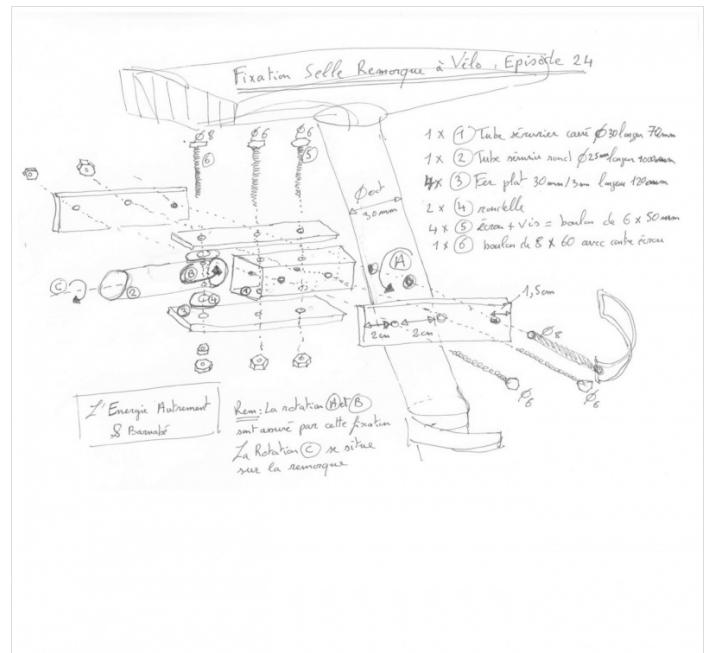 Fixation Selle Remorque à Vélo. Episode 24
1 x ① Tube serrurier carré Ø30 longeur 70mm
1 x ② Tube serrurier rond Ø25mm longeur 1000mm
4x ③ Fer plat 30mm/3mm longeur 120mm
2 x ④ rondelle
4 x ⑤ écrou + vis = boulon de 6 x 50mm
1 x ⑥ boulon de 8 x 60 avec contre écrou
Ø8
Ø6
Ø6
⑥
⑤
Øext
30mm
A
B
C
①
②
③
④
1,5cm
2cm
2cm
Ø8
Ø6
Ø6
L'Energie Autrement
& Barnabé
Rem: La rotation Ⓐ et Ⓑ
sont assuré par cette fixation
La Rotation Ⓒ se situe
sur la remorque